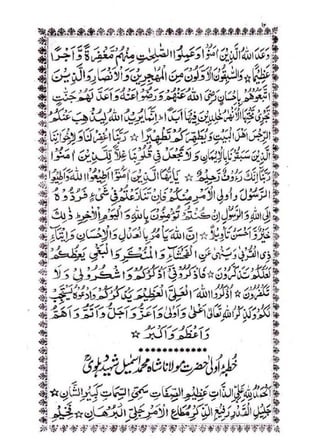 وَعَدَ اللهُ الَّذِينَ اٰمَنُوْا وَعَمِلُوا الصّٰلِحٰتِ مِنْهُمْ مَّغْفِرَةً وَّاَجْرًا
عَظِيْمًا ☆ وَالسّٰبِقُوْنَ الْاَوَّلُوْنَ مِنَ الْمُهٰجِرِيْنَ وَالْاَنْصَارِ وَالَّذِيْنَ
اتَّبَعُوْهُمْ بِاِحْسَانٍ رَّضِيَ اللهُ عَنْهُمْ وَرَضُوْا عَنْهُ وَاَعَدَّ لَهُمْ جَنّٰتٍ
تَجْرِيْ تَحْتَهَا الْاَنْهٰرُ خٰلِدِيْنَ فِيْهَا اَبَدًا ☆ اِنَّمَا يُرِيْدُ اللهُ لِيُذْهِبَ عَنْكُمُ
الرِّجْسَ اَهْلَ الْبَيْتِ وَيُطَهِّرَكُمْ تَطْهِيْرًا ☆ رَبَّنَا اغْفِرْ لَنَا وَلِاِخْوَانِنَا
الَّذِيْنَ سَبَقُوْنَا بِالْاِيْمَانِ وَلَا تَجْعَلْ فِيْ قُلُوْبِنَا غِلًّا لِّلَّذِيْنَ اٰمَنُوْا
رَبَّنَا اِنَّكَ رَءُوْفٌ رَّحِيْمٌ ☆ يٰاَيُّهَا الَّذِيْنَ اٰمَنُوْا اَطِيْعُوا اللهَ وَاَطِيْعُوا
الرَّسُوْلَ وَاُولِي الْاَمْرِ مِنْكُمْ فَاِنْ تَنَازَعْتُمْ فِيْ شَيْءٍ فَرُدُّوْهُ
اِلَى اللهِ وَالرَّسُوْلِ اِنْ كُنْتُمْ تُؤْمِنُوْنَ بِاللهِ وَالْيَوْمِ الْاٰخِرِ ط ذٰلِكَ
خَيْرٌ وَّاَحْسَنُ تَاْوِيْلًا ☆ اِنَّ اللهَ يَاْمُرُ بِالْعَدْلِ وَالْاِحْسَانِ وَاِيْتَآءِ
ذِي الْقُرْبٰى وَيَنْهٰى عَنِ الْفَحْشَآءِ وَالْمُنْكَرِ وَالْبَغْيِ يَعِظُكُمْ
لَعَلَّكُمْ تَذَكَّرُوْنَ ☆ فَاذْكُرُوْنِيْ اَذْكُرْكُمْ وَاشْكُرُوْا لِيْ وَلَا
تَكْفُرُوْنِ ☆ اُذْكُرُوا اللهَ الْعَلِيَّ الْعَظِيْمَ يَذْكُرْكُمْ وَادْعُوْهُ يَسْتَجِبْ
لَكُمْ وَلَذِكْرُ اللهِ تَعَالٰى اَعْلٰى وَاَوْلٰى وَاَعَزُّ وَاَجَلُّ وَاَتَمُّ وَاَهَمُّ
وَاَعْظَمُ وَاَكْبَرُ ☆
خطبۂ اولٰی حضرت مولانا شاہ محمد اسمٰعیل شہید دہلویؒ
اَلْحَمْدُ لِلّٰهِ عَلِيِّ الذَّاتِ عَظِيْمِ الصِّفَاتِ سَمِيِّ السِّمَاتِ كَبِيْرِ الشَّانِ ☆
جَلِيْلِ الْقَدْرِ رَفِيْعِ الذِّكْرِ مُطَاعِ الْاَمْرِ جَلِيِّ الْبُرْهَانِ ☆ فَخِيْمِ